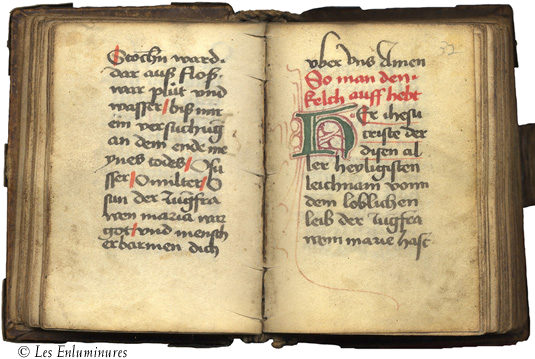 Stochn ward·
dar auß floß
war plut vnd
wasser / biß mir
ein versuchug
an dem ende me
ynes todes / O su
sser / O milter / O
sun der Jugfra
wen maria war
got / vnd mensch
erbarmen dich
vber vns Amen
So man den
kelch auff hebt
HEr ihesu
criste der
disen al
ler heyligisten
leichnam vonn
dem loblichen
leib der Jugfra
wem marie hast
32
© Les Enluminures